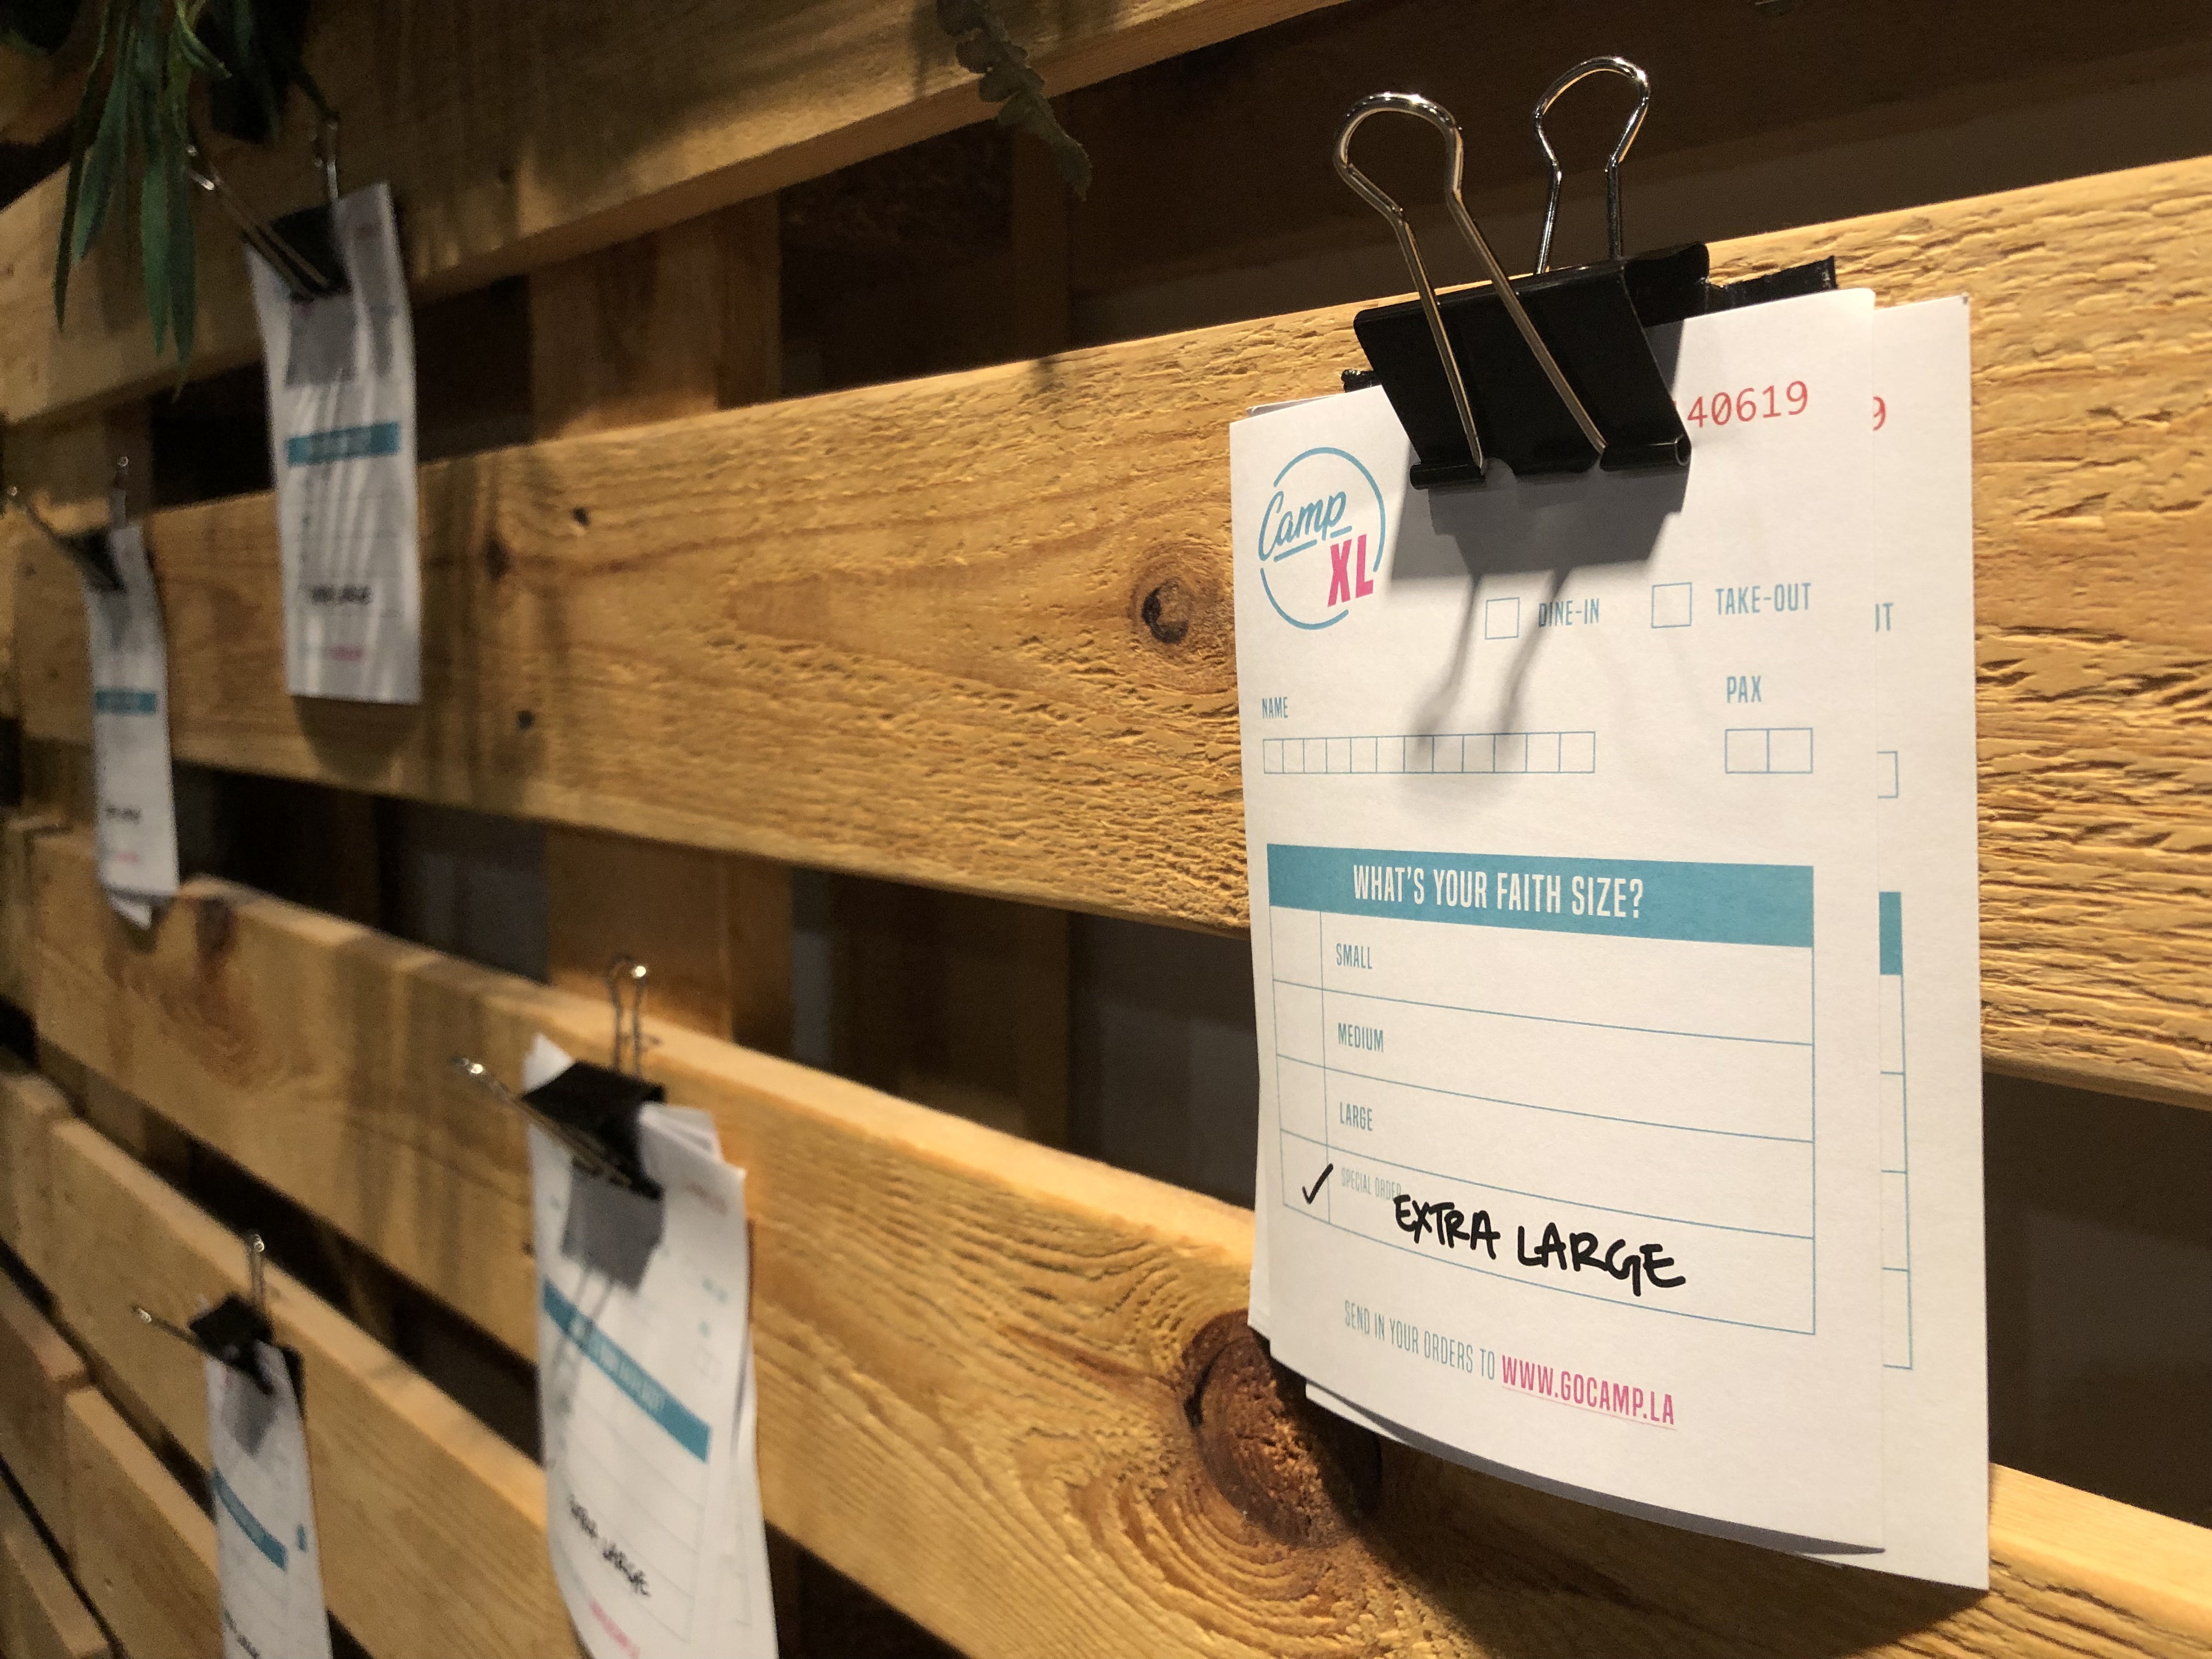 40619
9
Camp
XL
DINE-IN TAKE-OUT
IT
NAME PAX
WHAT'S YOUR FAITH SIZE?
SMALL
MEDIUM
LARGE
✓ SPECIAL ORDER
EXTRA LARGE
SEND IN YOUR ORDERS TO WWW.GOCAMP.LA
EXTRA LARGE